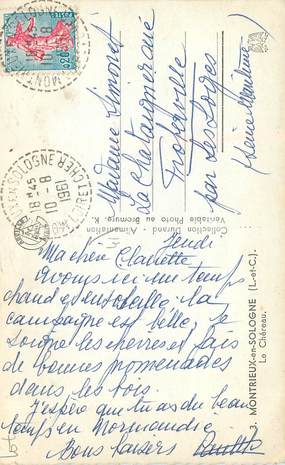 Jeudi
Ma chère Clairette
Avons ici un temps
chaud et ensoleillé. la
campagne est belle, je
soigne les pierres et fais
de bonnes promenades
dans les bois.
J'espère que tu as du beau
temps en Normandie
Bons baisers
Madame Simonet
La Chataigneraie
par Les Loges
(Seine Maritime)
Collection Durand - Alimentation
Véritable Photo au Bromure. K.
3. MONTRIEUX-en-SOLOGNE (L.-et-C.).
Le Château.
8H45
10-8
1961
LOIR ET CHER
0,20